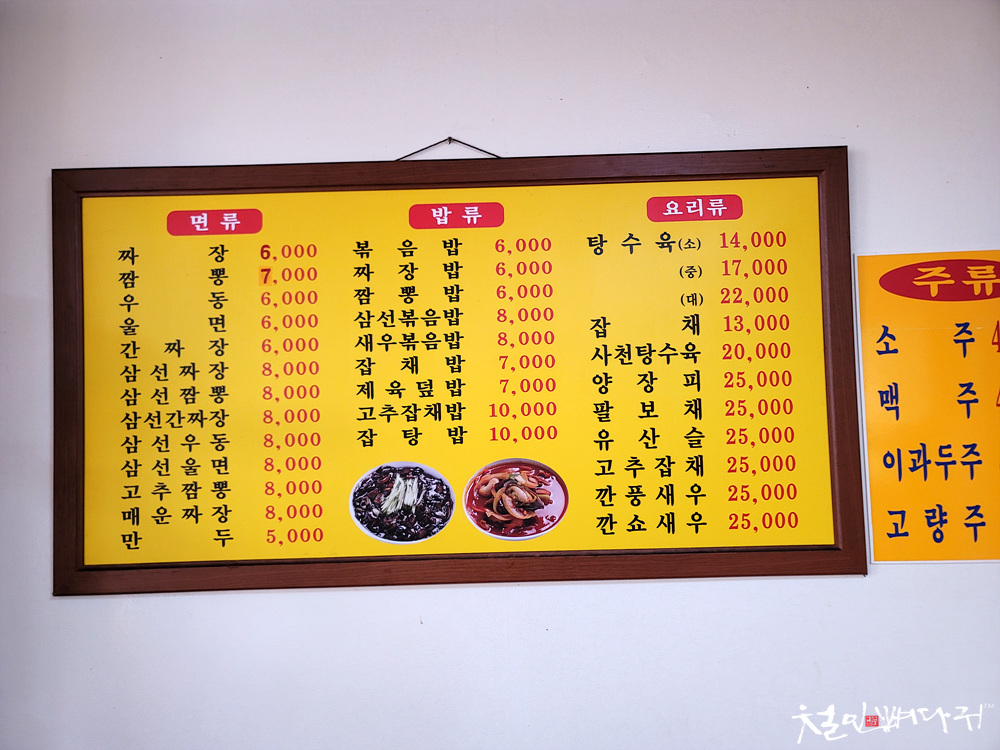 면류
짜장 6,000
짬뽕 7,000
우동 6,000
울면 6,000
간짜장 6,000
삼선짜장 8,000
삼선짬뽕 8,000
삼선간짜장 8,000
삼선우동 8,000
삼선울면 8,000
고추짬뽕 8,000
매운짜장 8,000
만두 5,000
밥류
볶음밥 6,000
짜장밥 6,000
짬뽕밥 6,000
삼선볶음밥 8,000
새우볶음밥 8,000
잡채밥 7,000
제육덮밥 7,000
고추잡채밥 10,000
잡탕밥 10,000
요리류
탕수육(소) 14,000
(중) 17,000
(대) 22,000
잡채 13,000
사천탕수육 20,000
양장피 25,000
팔보채 25,000
유산슬 25,000
고추잡채 25,000
깐풍새우 25,000
깐쇼새우 25,000
주류
소주 4
맥주
이과두주
고량주
철민뼈다귀